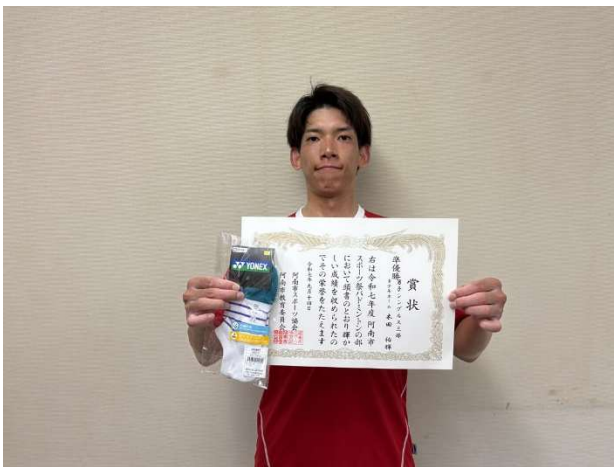 賞状
準優勝 男子シングルス三部
右は令和七年度 阿南市
スポーツ祭バドミントンの部
において頭書のとおり輝か
しい成績を収められたの
でその栄誉をたたえます
阿南市スポーツ協会
阿南市教育委員会
YONEX